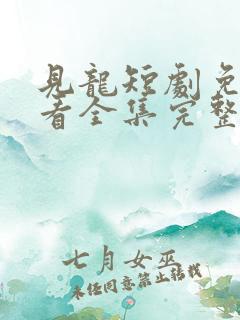 見龍短劇免
看全集完整
七月女巫
未经同意禁止转载